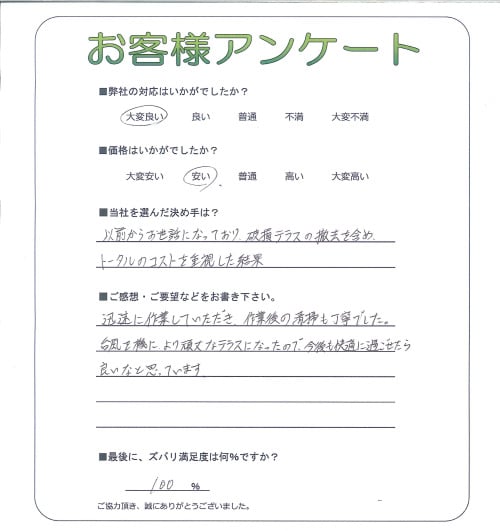 お客様アンケート
■弊社の対応はいかがでしたか？
大変良い 良い 普通 不満 大変不満
■価格はいかがでしたか？
大変安い 安い 普通 高い 大変高い
■当社を選んだ決め手は？
以前からお世話になっており、破損テラスの撤去を含め、
トータルのコストを重視した結果
■ご感想・ご要望などをお書き下さい。
迅速に作業していただき、作業後の清掃も丁寧でした。
台風を機に、より頑丈なテラスになったので、今後も快適に過ごせたら
良いなと思っています。
■最後に、ズバリ満足度は何%ですか？
100 %
ご協力頂き、誠にありがとうございました。